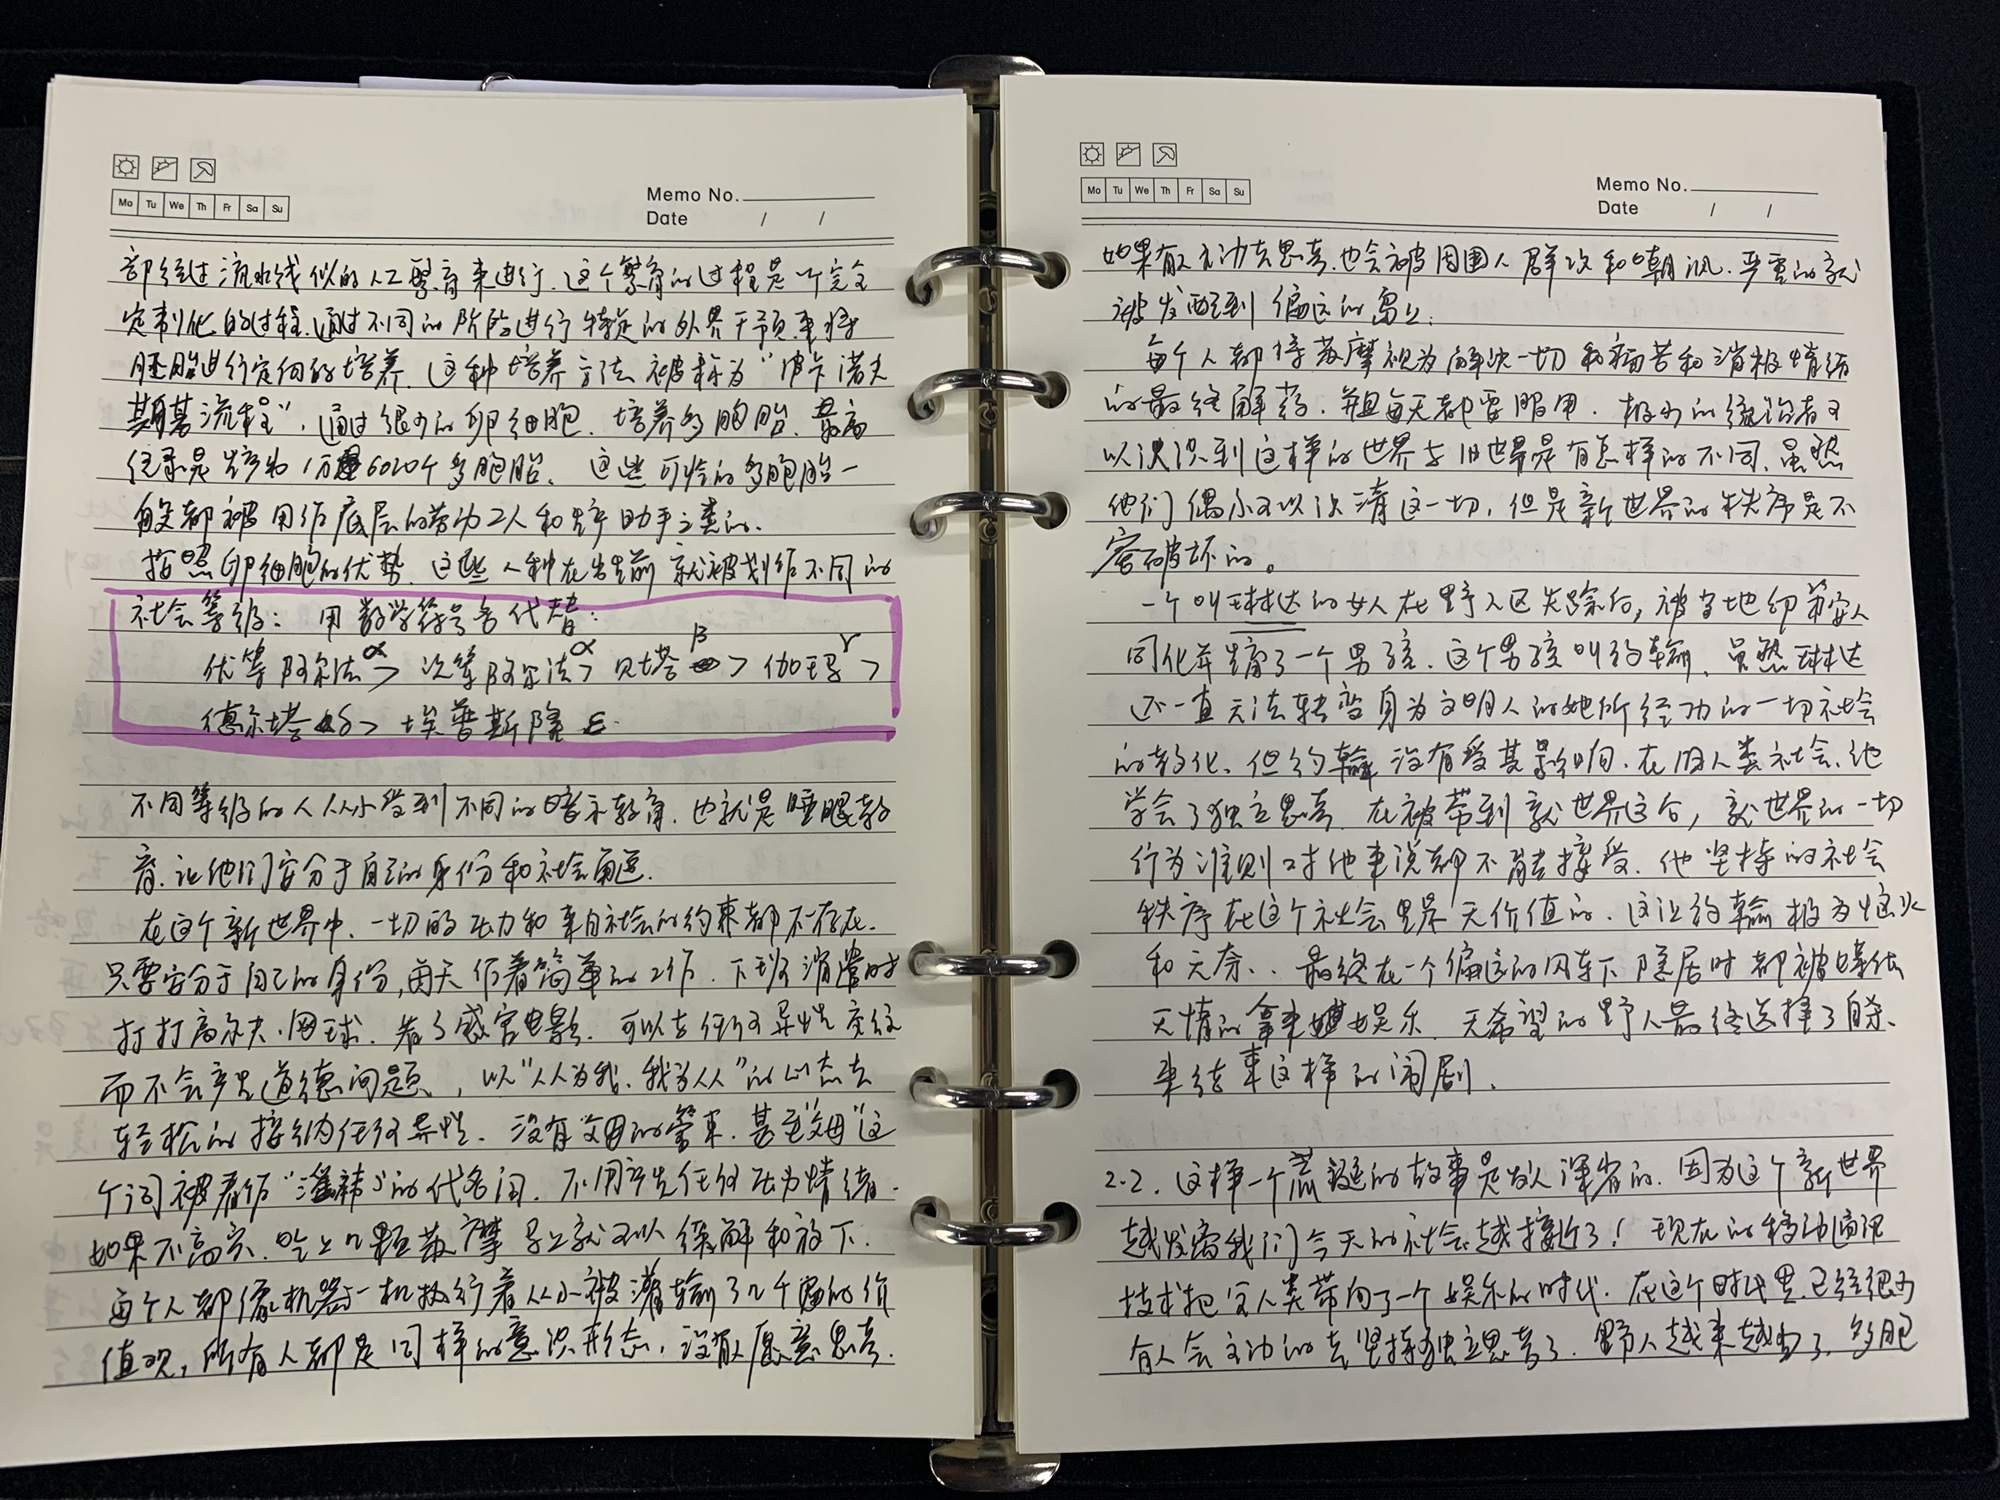 Mo Tu We Th Fr Sa Su
Memo No.
Date / /
部经过流水线似的人工繁育来进行.这个繁育的过程是一个完全
定制化的过程.通过不同的阶段进行特定的外界干预来将
胚胎进行定向的培养.这种培养方法被称为“波卡诺夫
斯基流程”,通过很少的卵细胞.培养多胞胎.最高
纪录是生产为1万6020个多胞胎.这些可怜的多胞胎一
般都被用作底层的劳动工人和助手之类的.
按照卵细胞的优势.这些人种在出生前就被划作不同的
社会等级:用数学符号名代替:
优等阿尔法α> 次等阿尔法α> 贝塔β> 伽玛γ>
德尔塔δ> 埃普斯隆ε.
不同等级的人从小受到不同的暗示教育.也就是睡眠教
育.让他们安分于自己的身份和社会角色.
在这个新世界中.一切的压力和来自社会的约束都不存在.
只要安分于自己的身份,每天作着简单的工作.下班消遣时
打打高尔夫.网球.看了感官电影.可以去任何异性交往
而不会产生道德问题.,以“人人为我.我为人人”的心态去
轻松的接纳任何异性.没有父母的管束.甚至“父母”这
个词被看作“淫秽”的代名词.不用产生任何压力情绪.
如果不高兴.吃上几颗苏摩马上就可以缓解和放下.
每个人都像机器一机执行着从小被灌输了几千遍的价
值观,所有人都是同样的意识形态.没有人愿意思考.
Mo Tu We Th Fr Sa Su
Memo No.
Date / /
如果有人主动去思考.也会被周围人群攻和嘲讽.严重的就
被发配到偏远的岛上.
每个人都将苏摩视为解决一切和痛苦和消极情绪
的最终解药.并且每天都要服用.极少的统治者可
以认识到这样的世界与旧世界是有怎样的不同.虽然
他们偶尔可以认清这一切.但是新世界的秩序是不
容破坏的。
一个叫琳达的女人在野人区失踪后,被当地印第安人
同化并生育了一个男孩.这个男孩叫约翰.虽然琳达
还一直无法转变身为文明人的她所经历的一切社会
的教化.但约翰没有受其影响.在旧人类社会.他
学会了独立思考.在被带到新世界之后,新世界的一切
行为准则对他来说都不能接受.他坚持的社会
秩序在这个社会里是无价值的.这让约翰极为恼火
和无奈..最终在一个偏远的风车下隐居时都被媒体
无情的拿来娱乐.无希望的野人最终选择了自杀.
来结束这样的闹剧.
2.2.这样一个荒诞的故事是发人深省的.因为这个新世界
越发离我们今天的社会越接近了!现在的移动通讯
技术把全人类带向了一个娱乐的时代.在这个时代里.已经很少
有人会主动的去坚持独立思考了.野人越来越少了.多胞